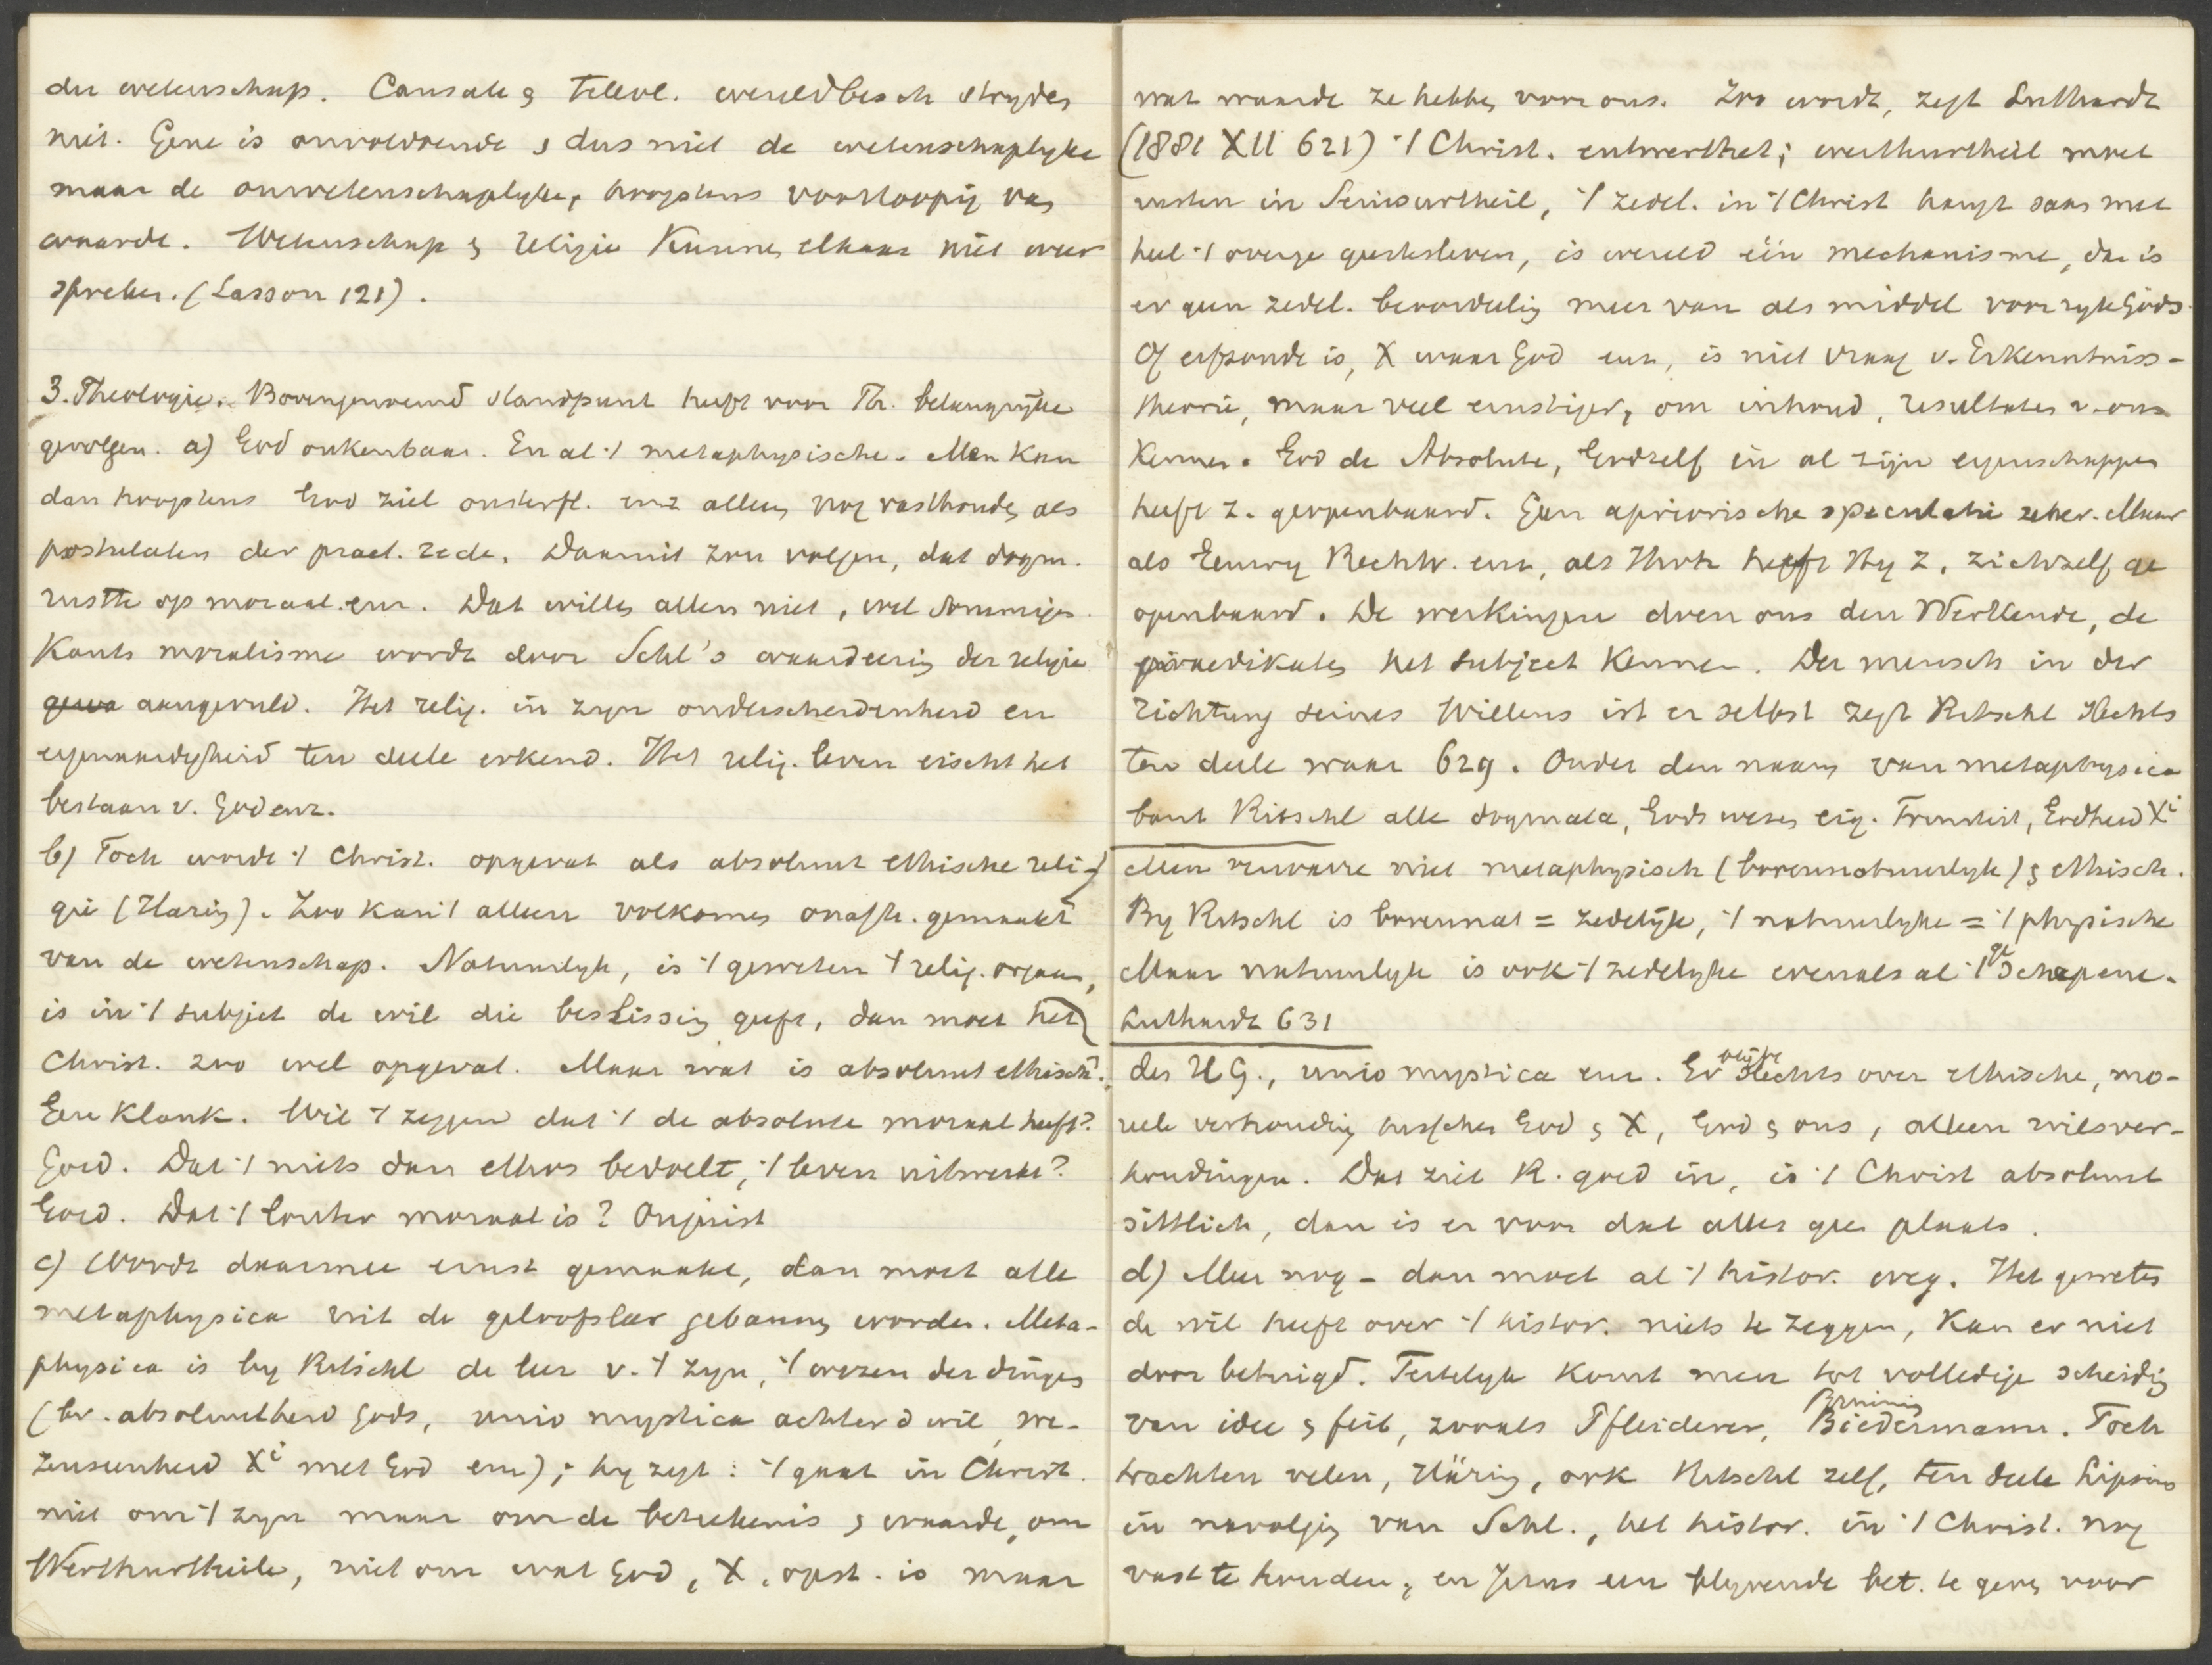 der wetenschap. Causale & teleol. wereldbesch strijden
niet. Gene is onvoldoende & dus niet de wetenschaplyke
maar de onwetenschaplyke, hoogstens voorloopig van
waarde. Wetenschap & religie kunnen elkaar niet weer
spreken. (Lasson 121).
3. Theologie. Bovengenoemd standpunt heeft voor Th. belangrijke
gevolgen. a) God onkenbaar. En al 't metaphysische. Men kan
dan hoogstens God ziel onsterfl. enz alleen nog vasthouden als
postulaten der pract. rede. Daaruit zou volgen, dat dogm.
rustte op moraal enz. Dat willen allen niet, wel sommigen.
Kants moralisme wordt door Schl's waardeering der religie
gewo aangevuld. Het relig. in zijn onderscheidenheid en
eigenaardigheid ten deele erkend. Het relig. leven eischt het
bestaan v. God enz.
b) Toch wordt 't Christ. opgevat als absoluut ethische reli-
gie (Häring). Zoo kan 't alleen volkomen onafh. gemaakt
van de wetenschap. Natuurlyk, is 't geweten 't relig. orgaan,
is in 't subject de wil die beslissing geeft, dan moet het
Christ. zoo wel opgevat. Maar wat is absoluut ethisch?
Een klank. Wil 't zeggen dat 't de absolute moraal heeft?
Goed. Dat 't niets dan ethos bedoelt, 't leven uitwerkt?
Goed. Dat 't louter moraal is? Onjuist
c) Wordt daarmee ernst gemaakt, dan moet alle
metaphysica uit de geloofsleer gebannen worden. Meta-
physica is by Ritschl de leer v. 't zyn, 't wezen der dingen
(bv. absoluutheid Gods, unio mystica achter d wil, we-
zenseenheid Xi met God enz); hy zegt: 't gaat in Christ.
niet om 't zyn maar om de beteekenis & waarde, om
Werthurtheile, niet om wat God, X, opst. is maar
wat waarde ze hebben voor ons. Zoo wordt, zegt Luthardt
(1881 XII 621) 't Christ. entwerthet; werthurtheil moet
rusten in Seinsurtheil, 't zedel. in 't Christ hangt saam met
heel 't overige geestesleven, is wereld één mechanisme, dan is
er geen zedel. beoordeling meer van als middel voor ryk Gods.
Of erfzonde is, X waar God enz, is niet vraag v. Erkenntniss-
theorie, maar veel ernstiger, om inhoud, resultaten v. ons
kennen. God de Absolute, Godzelf in al zijn eigenschappen
heeft z. geopenbaard. Geen apriorische speculatie zeker. Maar
als Eeuwig Rechtv. enz, als Thots heeft Hy z. zichzelf ge
openbaard. De werkingen doen ons den Werkende, de
praedikaten het subject kennen. Der mensch in der
Richtung seines Willens ist er selbst zegt Ritschl slechts
ten deele waar 629. Onder den naam van metaphysica
bant Ritschl alle dogmata, Gods wezen eig. Triniteit, Godheid Xi
Men verwarre niet metaphysisch (bovennatuurlyk) & ethisch.
By Ritschl is bovennat = zedelijk, 't natuurlyke = 't physische
Maar natuurlyk is ook 't zedelyke evenals al 't geschapene.
Luthardt 631
des HG., unio mystica enz. Er blijve slechts over ethische, mo-
reele verhouding tusschen God & X, God & ons, alleen wilsver-
houdingen. Dat ziet R. goed in, is 't Christ absoluut
sittlich, dan is er voor dat alles geen plaats.
d) Meer nog - dan moet al 't histor. weg. Het geweten
de wil heeft over 't histor. niets te zeggen, kan er niet
door betuigd. Feitelyk komt men tot volledige scheiding
van idee & feit, zooals Pfleiderer, Bruining Biedermann. Toch
trachten velen, Häring, ook Ritschl zelf, ten deele Lipsius
in navolging van Schl., het histor. in 't Christ. nog
vast te houden, en Jezus een blyvende bet. te geven voor